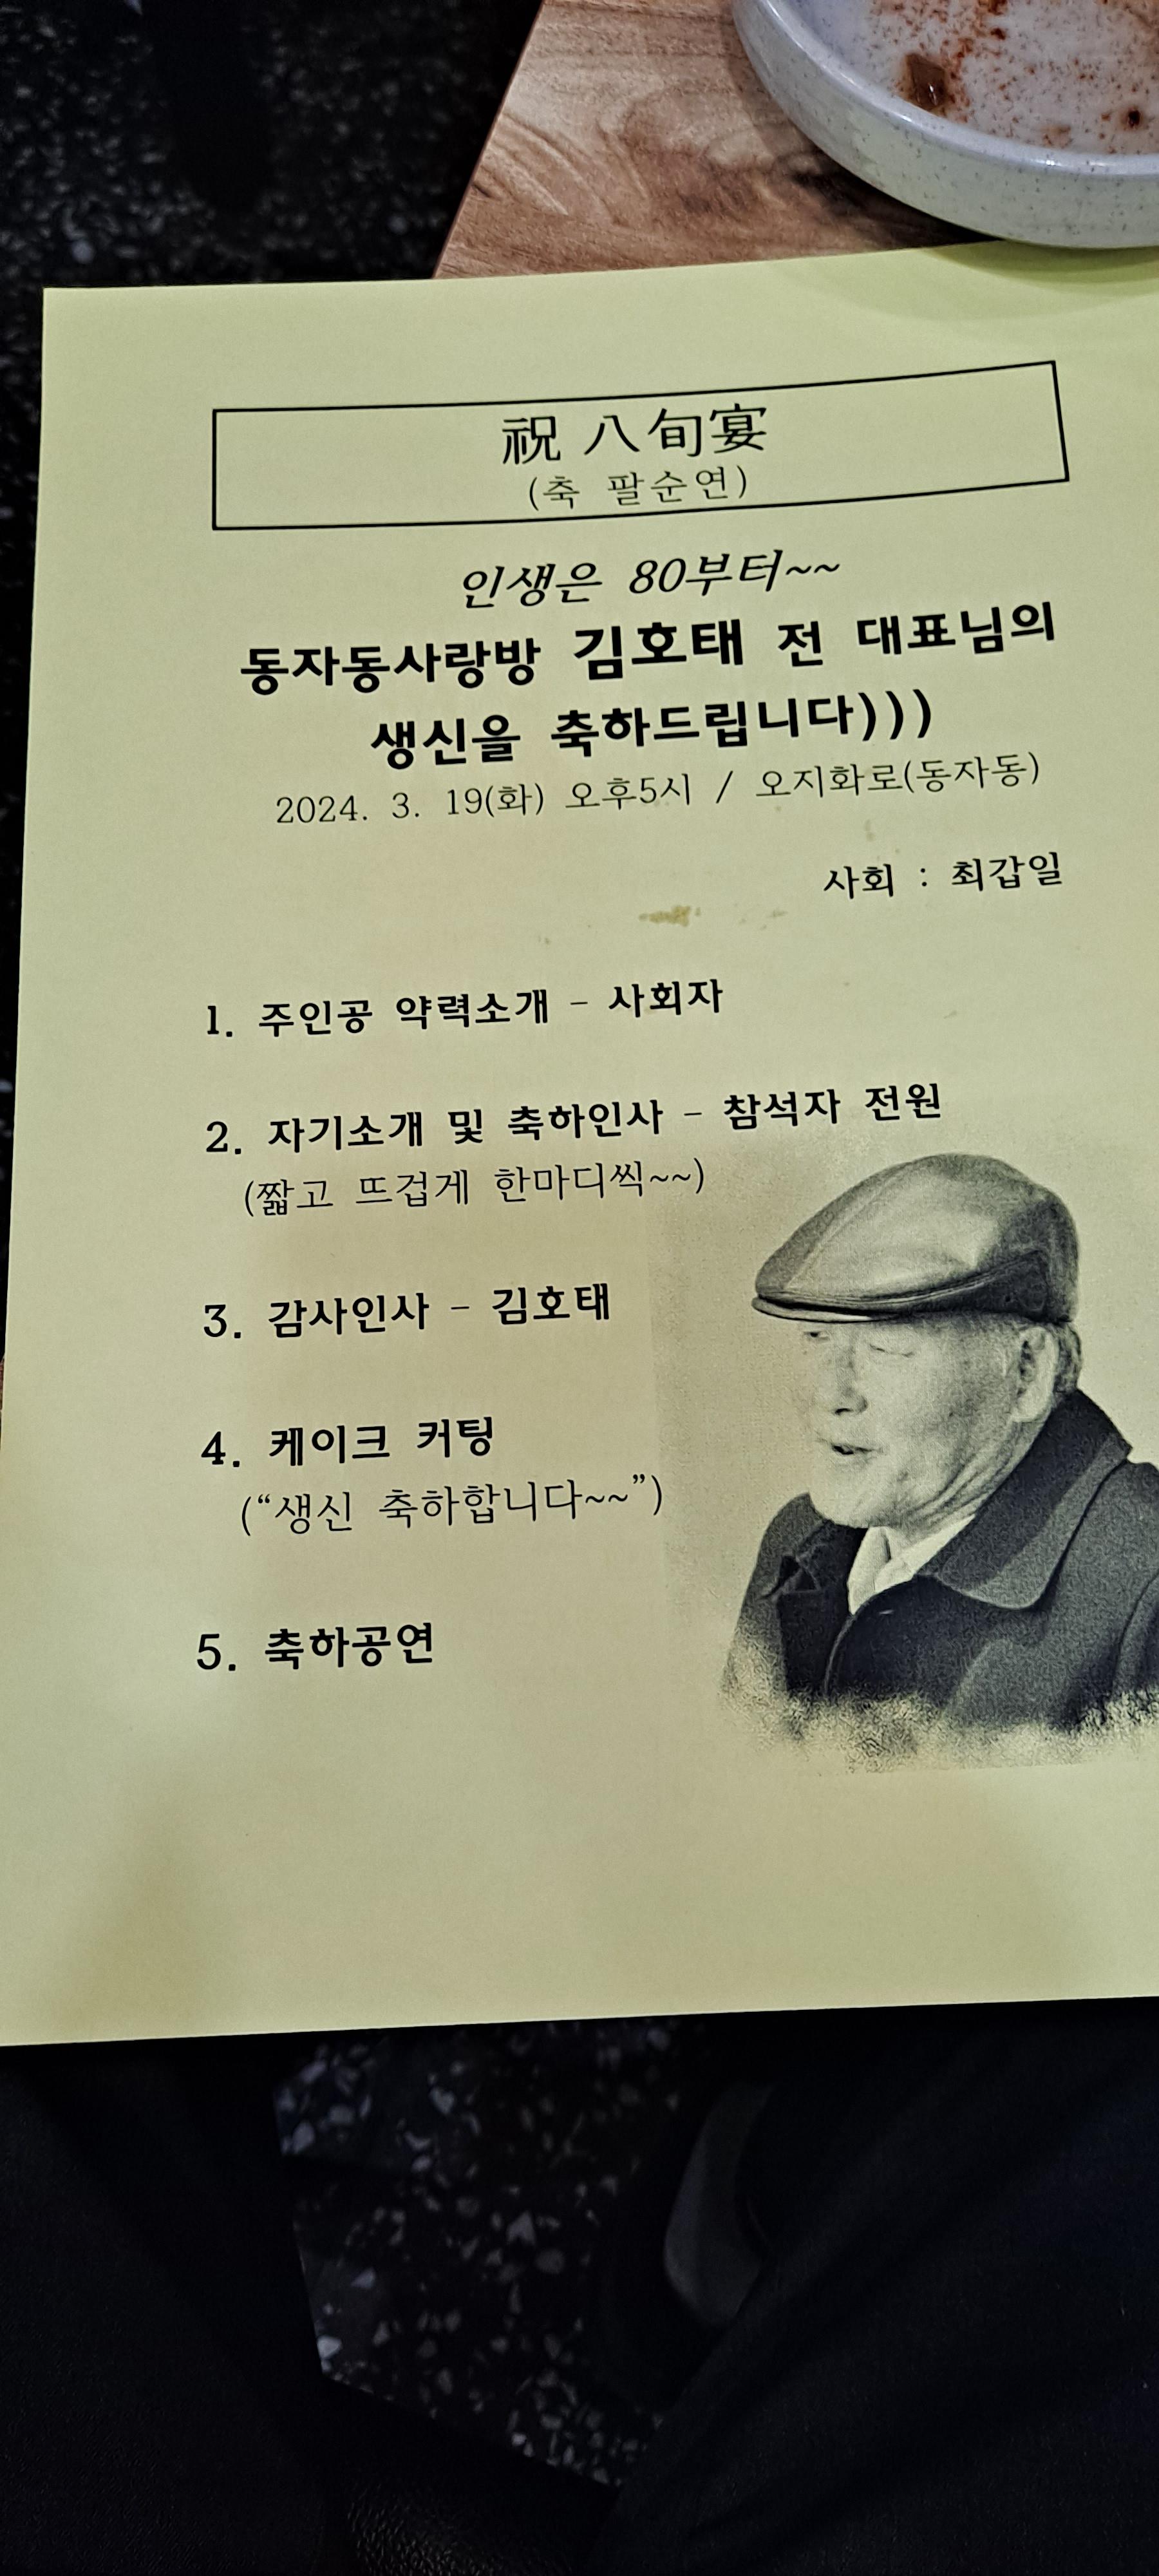 祝 八旬宴
(축 팔순연)
인생은 80부터~~
동자동사랑방 김호태 전 대표님의
생신을 축하드립니다)))
2024. 3. 19(화) 오후5시 / 오지화로(동자동)
사회 : 최갑일
1. 주인공 약력소개 - 사회자
2. 자기소개 및 축하인사 - 참석자 전원
(짧고 뜨겁게 한마디씩~~)
3. 감사인사 - 김호태
4. 케이크 커팅
(“생신 축하합니다~~”)
5. 축하공연